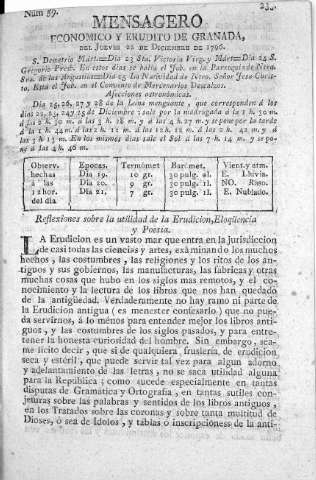 Núm 59.
MENSAGERO
ECONOMICO Y ERUDITO DE GRANADA,
DEL JUEVES 22 DE DICIEMBRE DE 1796.
S. Demetrio Márt.=Dia 23 Sta. Victoria Virg. y Mártir=Dia 24 S.
Gregorio Presb. En estos dias se halla el Jub. en la Parroquia de Ntra.
Sra. de las Angustias=Dia 25 La Natividad de Ntro. Señor Jesu-Cris-
to. Está el Jub. en el Convento de Mercenarios Descalzos.
Afecciones astronómicas.
Dia 25, 26, 27 y 28 de la Luna menguante, que corresponden á los
dias 22, 23, 24 y 25 de Diciembre: sale por la madrugada á la 1 h. 50 m.
Observ. Epocas. Termómet Barómet. Vient. y atm.
hechas Dia 19. 10 gr. 30 pulg. 2l. E. Lluvia.
á las Dia 20. 9 gr. 30 pulg. 1l. NO. Raso.
12 hor. Dia 21. 7 gr. 30 pulg. 1l. E. Nublado.
del dia
Reflexiones sobre la utilidad de la Erudicion, Eloqüencia
y Poesia.
LA Erudicion es un vasto mar que entra en la jurisdiccion
de casi todas las ciencias y artes, exâminando los muchos
hechos, las costumbres, las religiones y los ritos de los an-
tiguos y sus gobiernos, las manufacturas, las fábricas y otras
muchas cosas que hubo en los siglos mas remotos, y el co-
nocimiento y la lectura de los libros que nos han quedado
de la antigüedad. Verdaderamente no hay ramo ni parte de
la Erudicion antigua (es menester confesarlo) que no pue-
da servirnos, á lo ménos para entender mejor los libros anti-
guos, y las costumbres de los siglos pasados, y para entre-
tener la honesta curiosidad del hombre. Sin embargo, séa-
me lícito decir, que si de qualquiera, fruslería, de erudicion
seca y estéril, que puede servir tal vez para algun adorno
y adelantamiento de las letras, no se saca utilidad alguna
para la República; como sucede especialmente en tantas
disputas de Gramática y Ortografia, en tantas sutiles con-
jeturas sobre las palabras y sentidos de los libros antiguos,
en los Tratados sobre las coronas y sobre tanta multitud de
Dioses, ó sea de Idolos, y tablas ó inscripciónes de la anti-